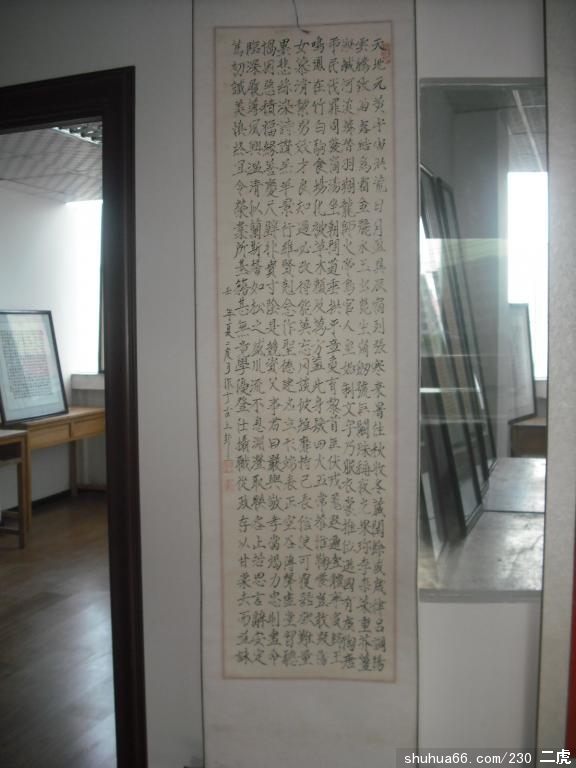 天地元黄宇宙洪荒日月盈昃辰宿列張寒來暑往秋收冬藏閏餘成歲律呂調陽
雲騰致雨露結為霜金生麗水玉出崑岡劍號巨闕珠稱夜光果珍李柰菜重芥薑
海鹹河淡鱗潛羽翔龍師火帝鳥官人皇始制文字乃服衣裳推位遜國有虞陶唐
弔民伐罪周發商湯坐朝問道垂拱平章愛育黎首臣伏戎羌遐邇壹體率賓歸王
鳴鳳在竹白駒食場化被草木賴及萬方蓋此身髮四大五常恭惟鞠養豈敢毀傷
女慕清絜男效才良知過必改得能莫忘罔談彼短靡恃己長信使可覆器欲難量
墨悲絲染詩讚羔羊景行維賢剋念作聖德建名立形端表正空谷傳聲虛堂習聽
禍因惡積福緣善慶尺璧非寶寸陰是競資父事君曰嚴與敬孝當竭力忠則盡命
臨深履薄夙興溫清似蘭斯馨如松之盛川流不息淵澄取映容止若思言辭安定
篤初誠美慎終宜令榮業所基籍甚無竟學優登仕攝職從政存以甘棠去而益詠
年夏二虎
shuhua66.com/230 二虎